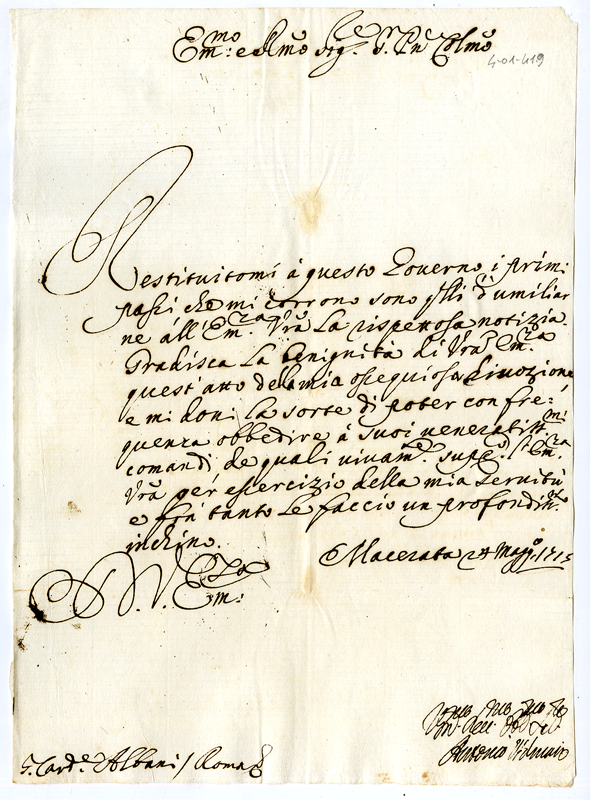 Em:mo e Rmo Sig.re S.r Pne Colmo
4-01-419
Restituitomi à questo Governo i primi
passi che mi corrono sono q̃lli d'umiliar
ne all'Em:za Vra La rispettosa notizia.
Gradisca La benignità di Vra Em:za
quest'atto della mia ossequiosa divozione
e mi doni la sorte di poter con fre=
quenza obbedire à suoi veneratiss:mi
comandi de quali vivam:te supp:co l'Em:za
Vrã per esercizio della mia servitù
e frà tanto Le faccio un profondiss:mo
inchino.
Macerata 24 Magg:o 1715
D. V. Em:za
Antonio
S. Card.e Albani / Roma